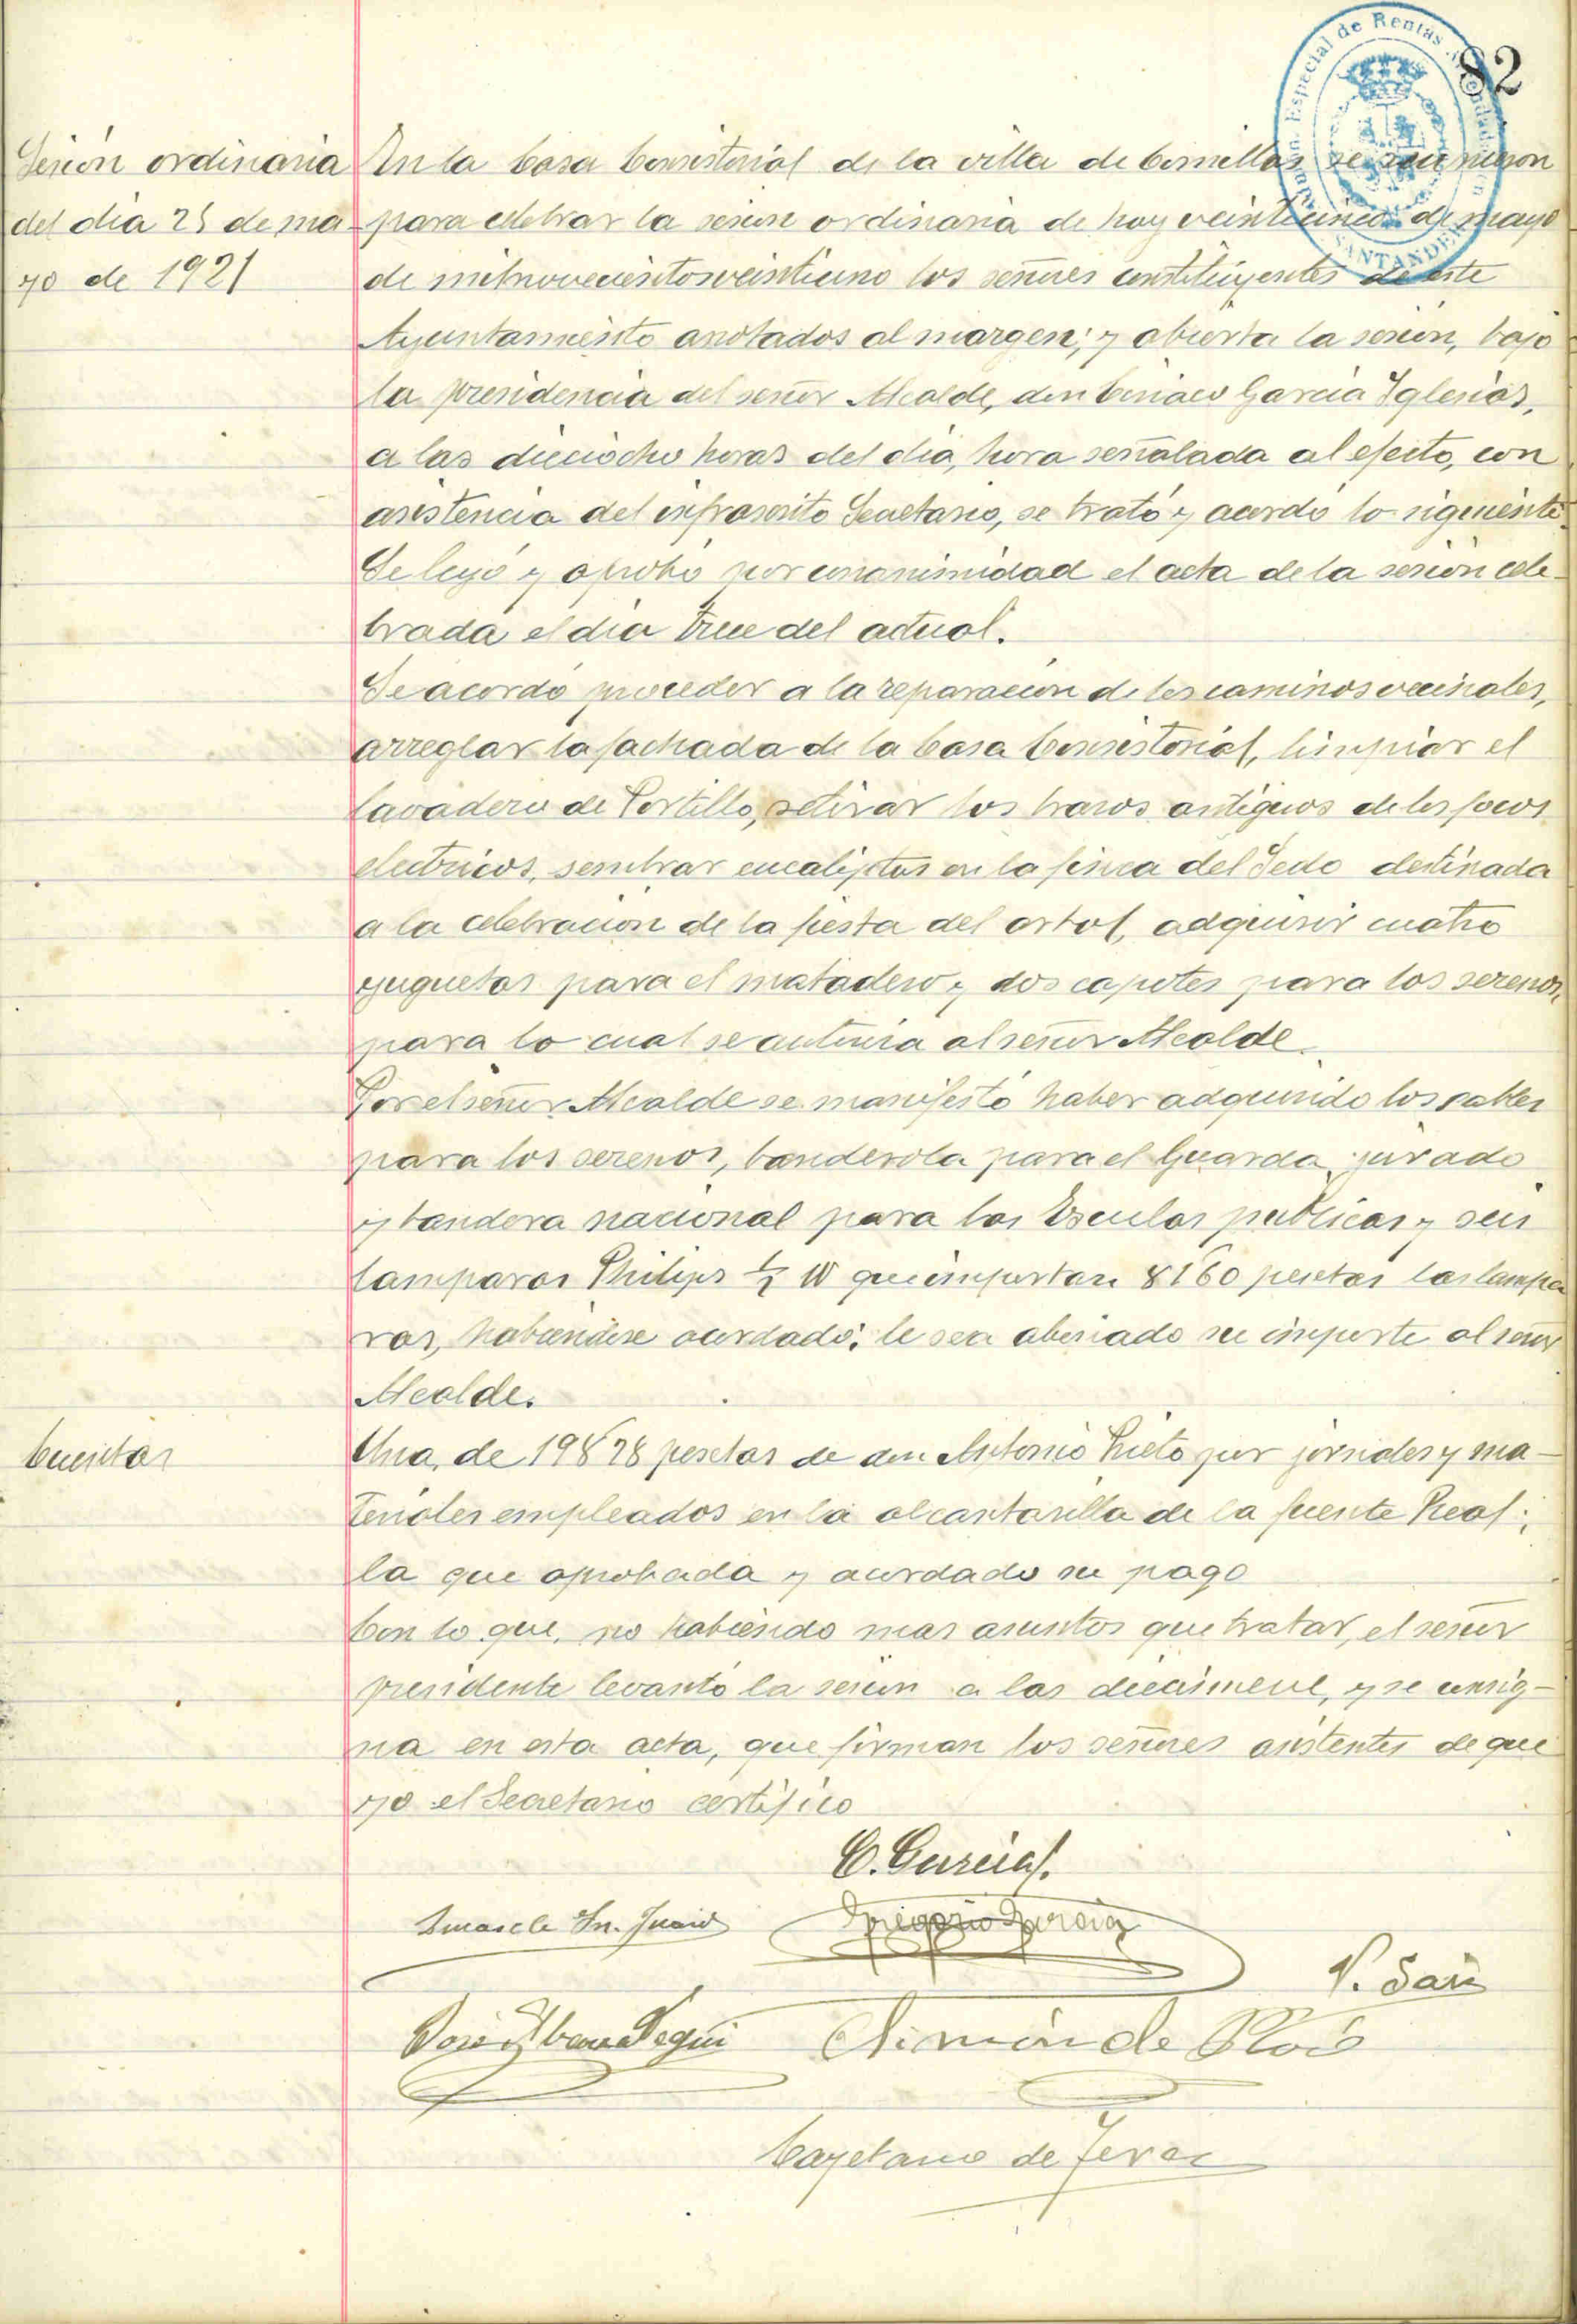 82
Sesión ordinaria
del dia 25 de ma-
yo de 1921
En la Casa Consistorial de la villa de Comillas se reunieron
para celebrar la sesion ordinaria de hoy veinticinco de mayo
de milnovecientosveintiuno los señores constituyentes de este
Ayuntamiento anotados al margen; y abierta la sesion, bajo
la presidencia del señor Alcalde, don Ciriaco Garcia Iglesias,
a las dieciocho horas del dia, hora señalada al efecto, con
asistencia del infrascrito Secretario, se trató y acordó lo siguiente.
Se leyó y aprobó por unanimidad el acta de la sesión cele-
brada el dia trece del actual.
Se acordó proceder a la reparacion de los caminos vecinales,
arreglar la fachada de la Casa Consistorial, limpiar el
lavadero de Portillo, retirar los brazos antiguos de los focos
electricos, sembrar eucaliptus en la finca del Tedo destinada
a la celebracion de la fiesta del arbol, adquirir cuatro
juguetas para el matadero y dos capotes para los serenos,
para lo cual se autoriza al señor Alcalde.
Por el señor Alcalde se manifestó haber adquirido los sables
para los serenos, banderola para el Guarda jurado
y bandera nacional para las Escuelas publicas y seis
lamparas Philips ½ W que importan 81'60 pesetas las lampa
ras, habiendose acordado; le sea abonado su importe al señor
Alcalde.
Cuentas
Una, de 198'28 pesetas de don Antonio Prieto por jornales y ma-
teriales empleados en la alcantarilla de la fuente Real;
la que aprobada y acordado su pago
Con lo que, no habiendo mas asuntos que tratar, el señor
presidente levantó la sesion a las diecinueve, y se consig-
na en esta acta, que firman los señores asistentes de que
yo el Secretario certifico
C. Garcia
Gregorio Garcia
V. Saiz
José
Simón de
Cayetano de